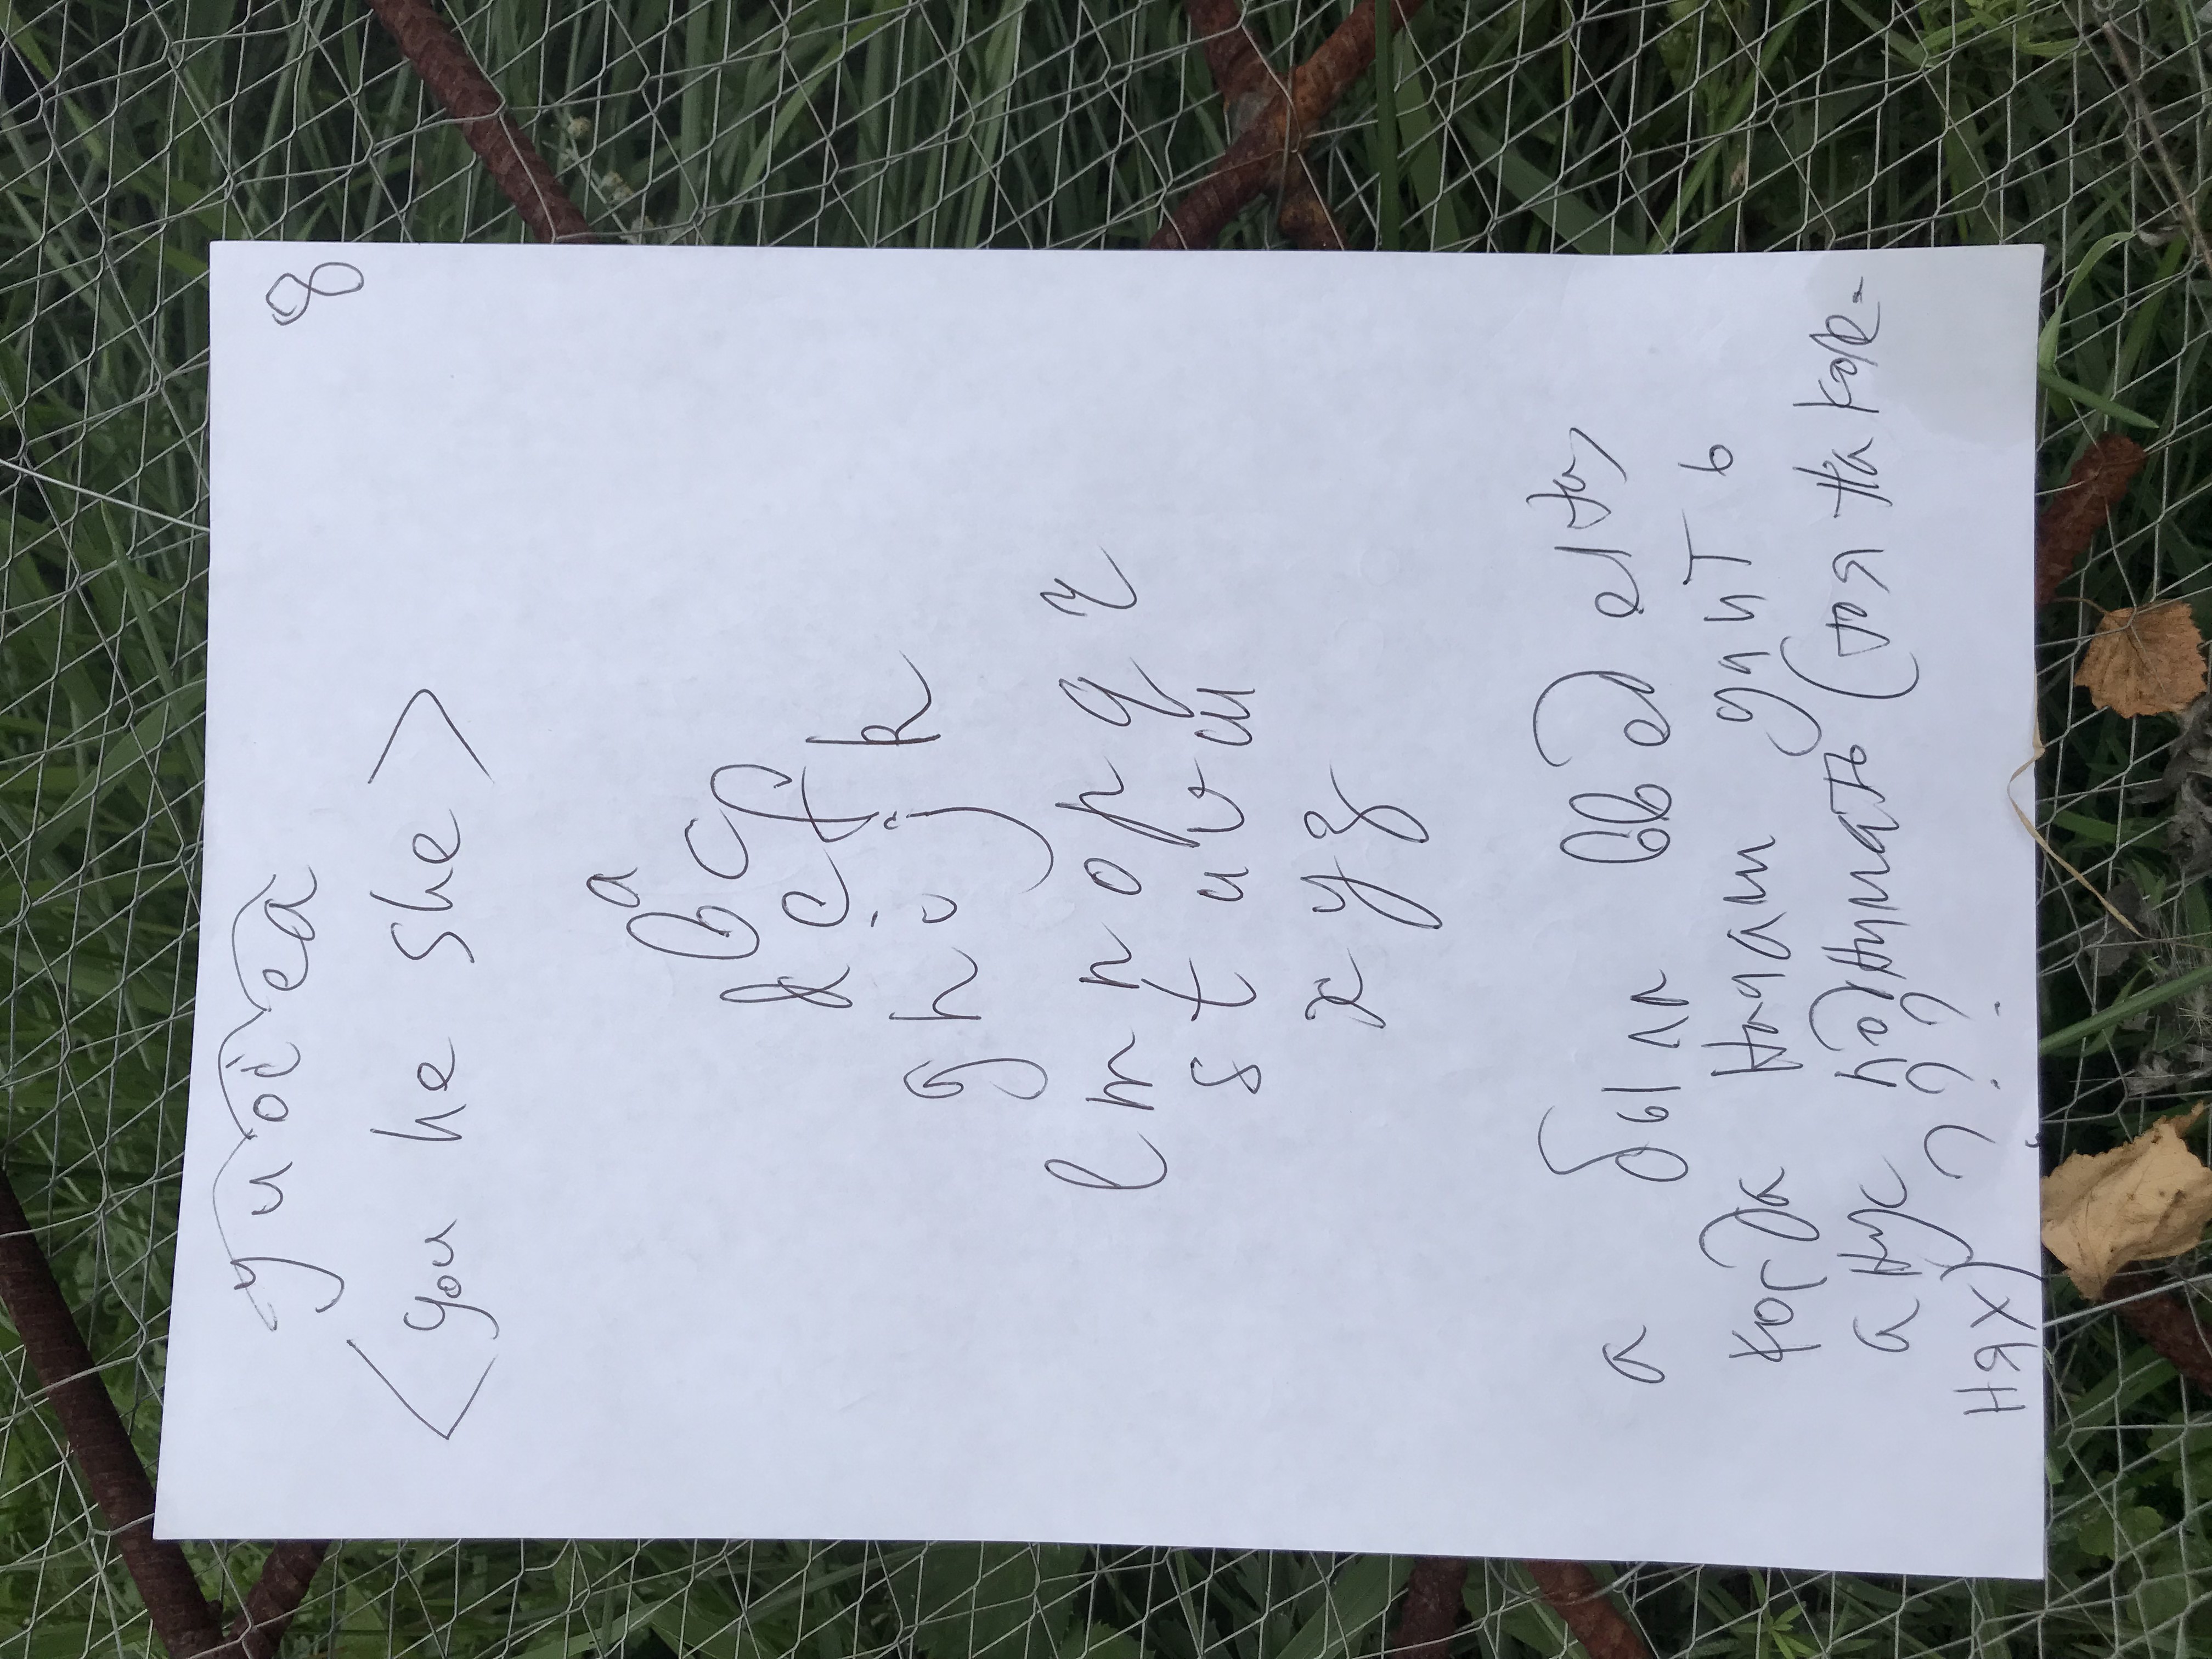 y u o i e a
8
<you he she>
a
b c
d e f
g h i j k
l m n o p q r
s t u v w
x y z
а были введены,
когда начали учить
анус поднимать (стоя на коле-
нях) ???